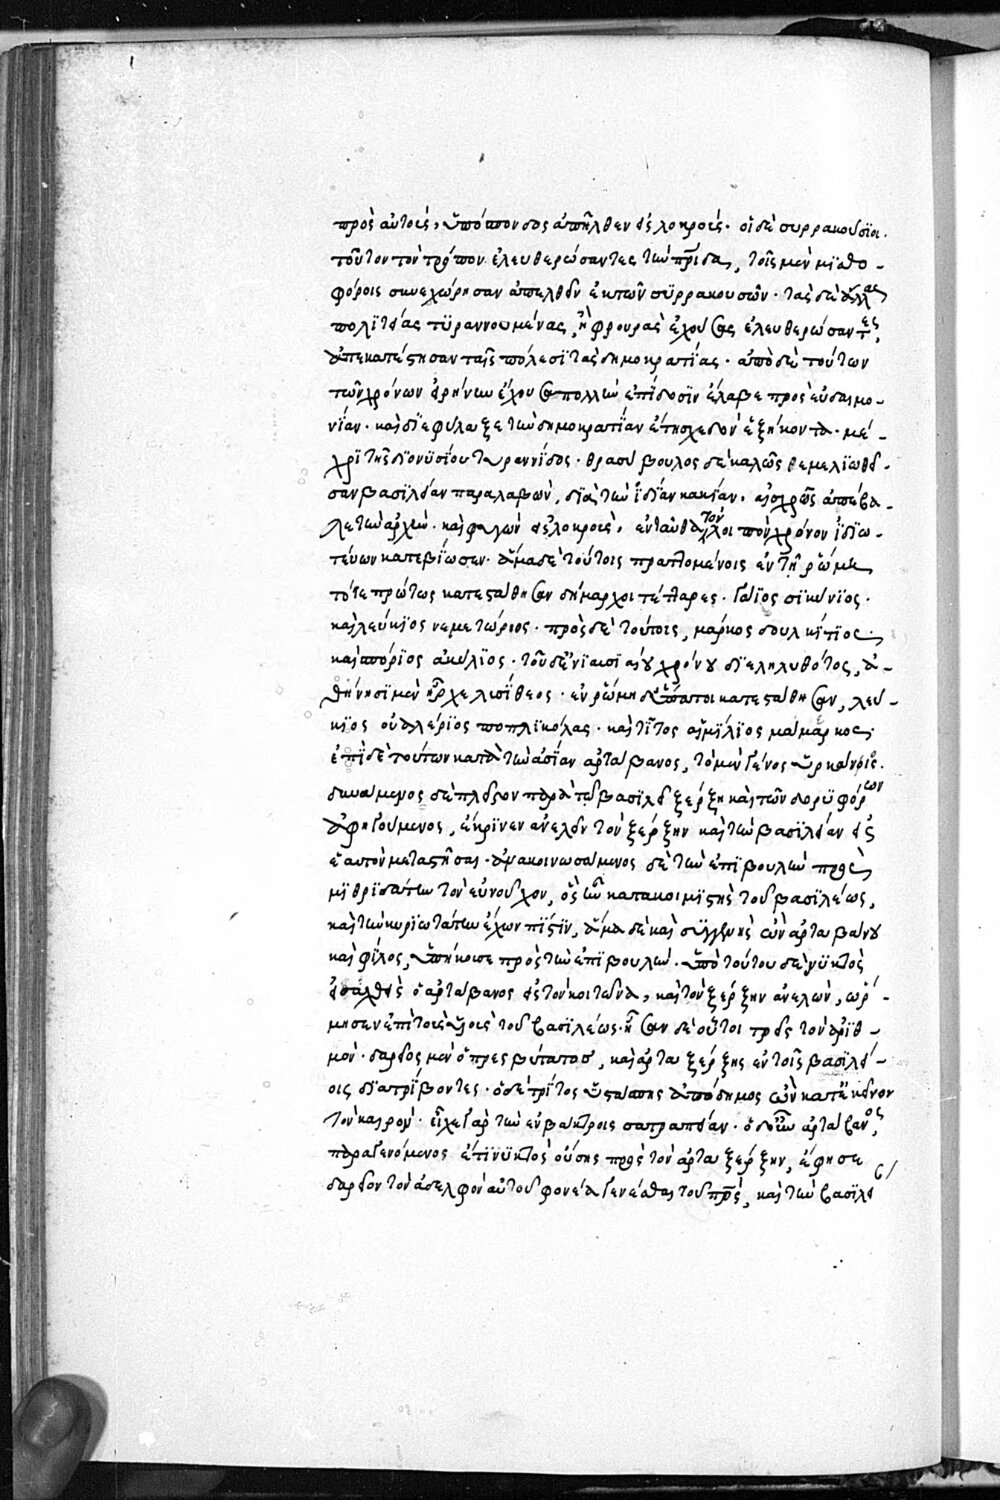 πρὸς αὐτοὺς, ὑπόσπονδος ἀπῆλθεν εἰς λοκρούς. οἱ δὲ συρρακούσϊοι
τοῦτον τὸν τρόπον ἐλευθερώσαντες τὴν πρίδα, τοῖς μὲν μϊσθο-
φόροις συνεχώρησαν ἀπελθεῖν ἐκ τῶν συρρακουσῶν. τὰς δὲ ἄλλας
πολϊτείας τϋραννουμένας, ἢ φρουρὰς ἐχούσας ἐλευθερώσαντες,
ἀπεκατέστησαν ταῖς πόλεσϊ τὰς δημοκρατίας. ἀπὸ δὲ τούτων
τῶν χρόνων εἰρήνην ἔχουσα πολλὴν ἐπίδοσϊν ἔλαβε πρὸς εὐδαιμο-
νίαν. καὶ δϊεφύλαξε τὴν δημοκρατΐαν ἔτη σχεδὸν ἑξήκοντα. μέ-
χρϊ τῆς δϊονϋσίου τυραννίδος. θρασύβουλος δὲ καλῶς θεμελϊωθεῖ-
σαν βασϊλείαν παραλαβὼν, δϊὰ τὴν ἰδίαν κακίαν, αἰσχρῶς ἀπέβα
λε τὴν ἀρχήν. καὶ φυγὼν εἰς λοκροὺς, ἐνταῦθα τὸν λοιπὸν χρόνον ἰδϊω-
τεύων κατεβίωσεν. ἅμα δὲ τούτοις πραττομένοις ἐν τῇ ῥώμῃ
τότε πρώτως κατεστάθησαν δήμαρχοι τέτταρες. γάϊος σϊκίνϊος.
καὶ λεύκϊος νεμετώριος. πρὸς δὲ τούτοις, μάρκος δουλκίτϊος.
καὶ σπόρϊος ἀκύλϊος. τοῦ δ' ἐνϊαυσϊαίου χρόνου δϊεληλυθότος, ἀ-
θήνησϊ μὲν ἦρχε λυσΐθεος. ἐν ῥώμη δ' ὕπατοι κατεστάθησαν, λεύ-
κϊος οὐαλέρϊος ποπλϊκόλας. καὶ τΐτος αἰμΐλϊος μάμαρκος.
ἐπὶ δὲ τούτων κατὰ τὴν ἀσίαν ἀρτάβανος, τὸ μὲν γένος ὑρκάνϊος.
δυνάμενος δὲ πλεῖστον παρὰ τῷ βασϊλεῖ ξέρξη καὶ τῶν δορϋφόρων
ἀφηγούμενος, ἔκρϊνεν ἀνελεῖν τὸν ξέρξην καὶ τὴν βασϊλείαν εἰς
ἑαυτὸν μεταστῆσαι. ἀνακοινωσάμενος δὲ τὴν ἐπϊβουλὴν πρὸς
μϊθρϊδάτην τὸν εὐνοῦχον, ὃς ἦν κατακοιμϊστὴς τοῦ βασϊλέως,
καὶ τὴν κυρϊωτάτην ἔχων πΐστϊν, ἅμα δὲ καὶ σϋγγενὴς ὢν ἀρταβάνου
καὶ φίλος, ὑπήκουσε πρὸς τὴν ἐπϊβουλήν. ὑπὸ τούτου δὲ νϋκτὸς
εἰσαχθεὶς ὁ ἀρτάβανος εἰς τὸν κοιτῶνα, καὶ τὸν ξέρξην ἀνελὼν, ὥρ-
μησεν ἐπὶ τοὺς υἱοὺς τοῦ βασϊλέως. ἦσαν δὲ οὗτοι τρεῖς τὸν ἀρϊθ-
μόν. δαρεῖος μὲν ὁ πρεσβύτατος, καὶ ἀρταξέρξης ἐν τοῖς βασϊλεί-
οις δϊατρίβοντες. ὁ δὲ τρΐτος ὑστάσπης ἀπόδημος ὢν κατ' ἐκεῖνον
τὸν καιρὸν. εἶχε γὰρ τὴν ἐν βάκτροις σατραπείαν. ὁ δ' οὖν ἀρτάβανος,
παραγενόμενος ἔτϊ νϋκτὸς οὔσης πρὸς τὸν ἀρταξέρξην, ἔφησε
δαρεῖον τὸν ἀδελφὸν αὐτοῦ φονέα γενέσθαι τοῦ πρς, καὶ τὴν βασϊλεί